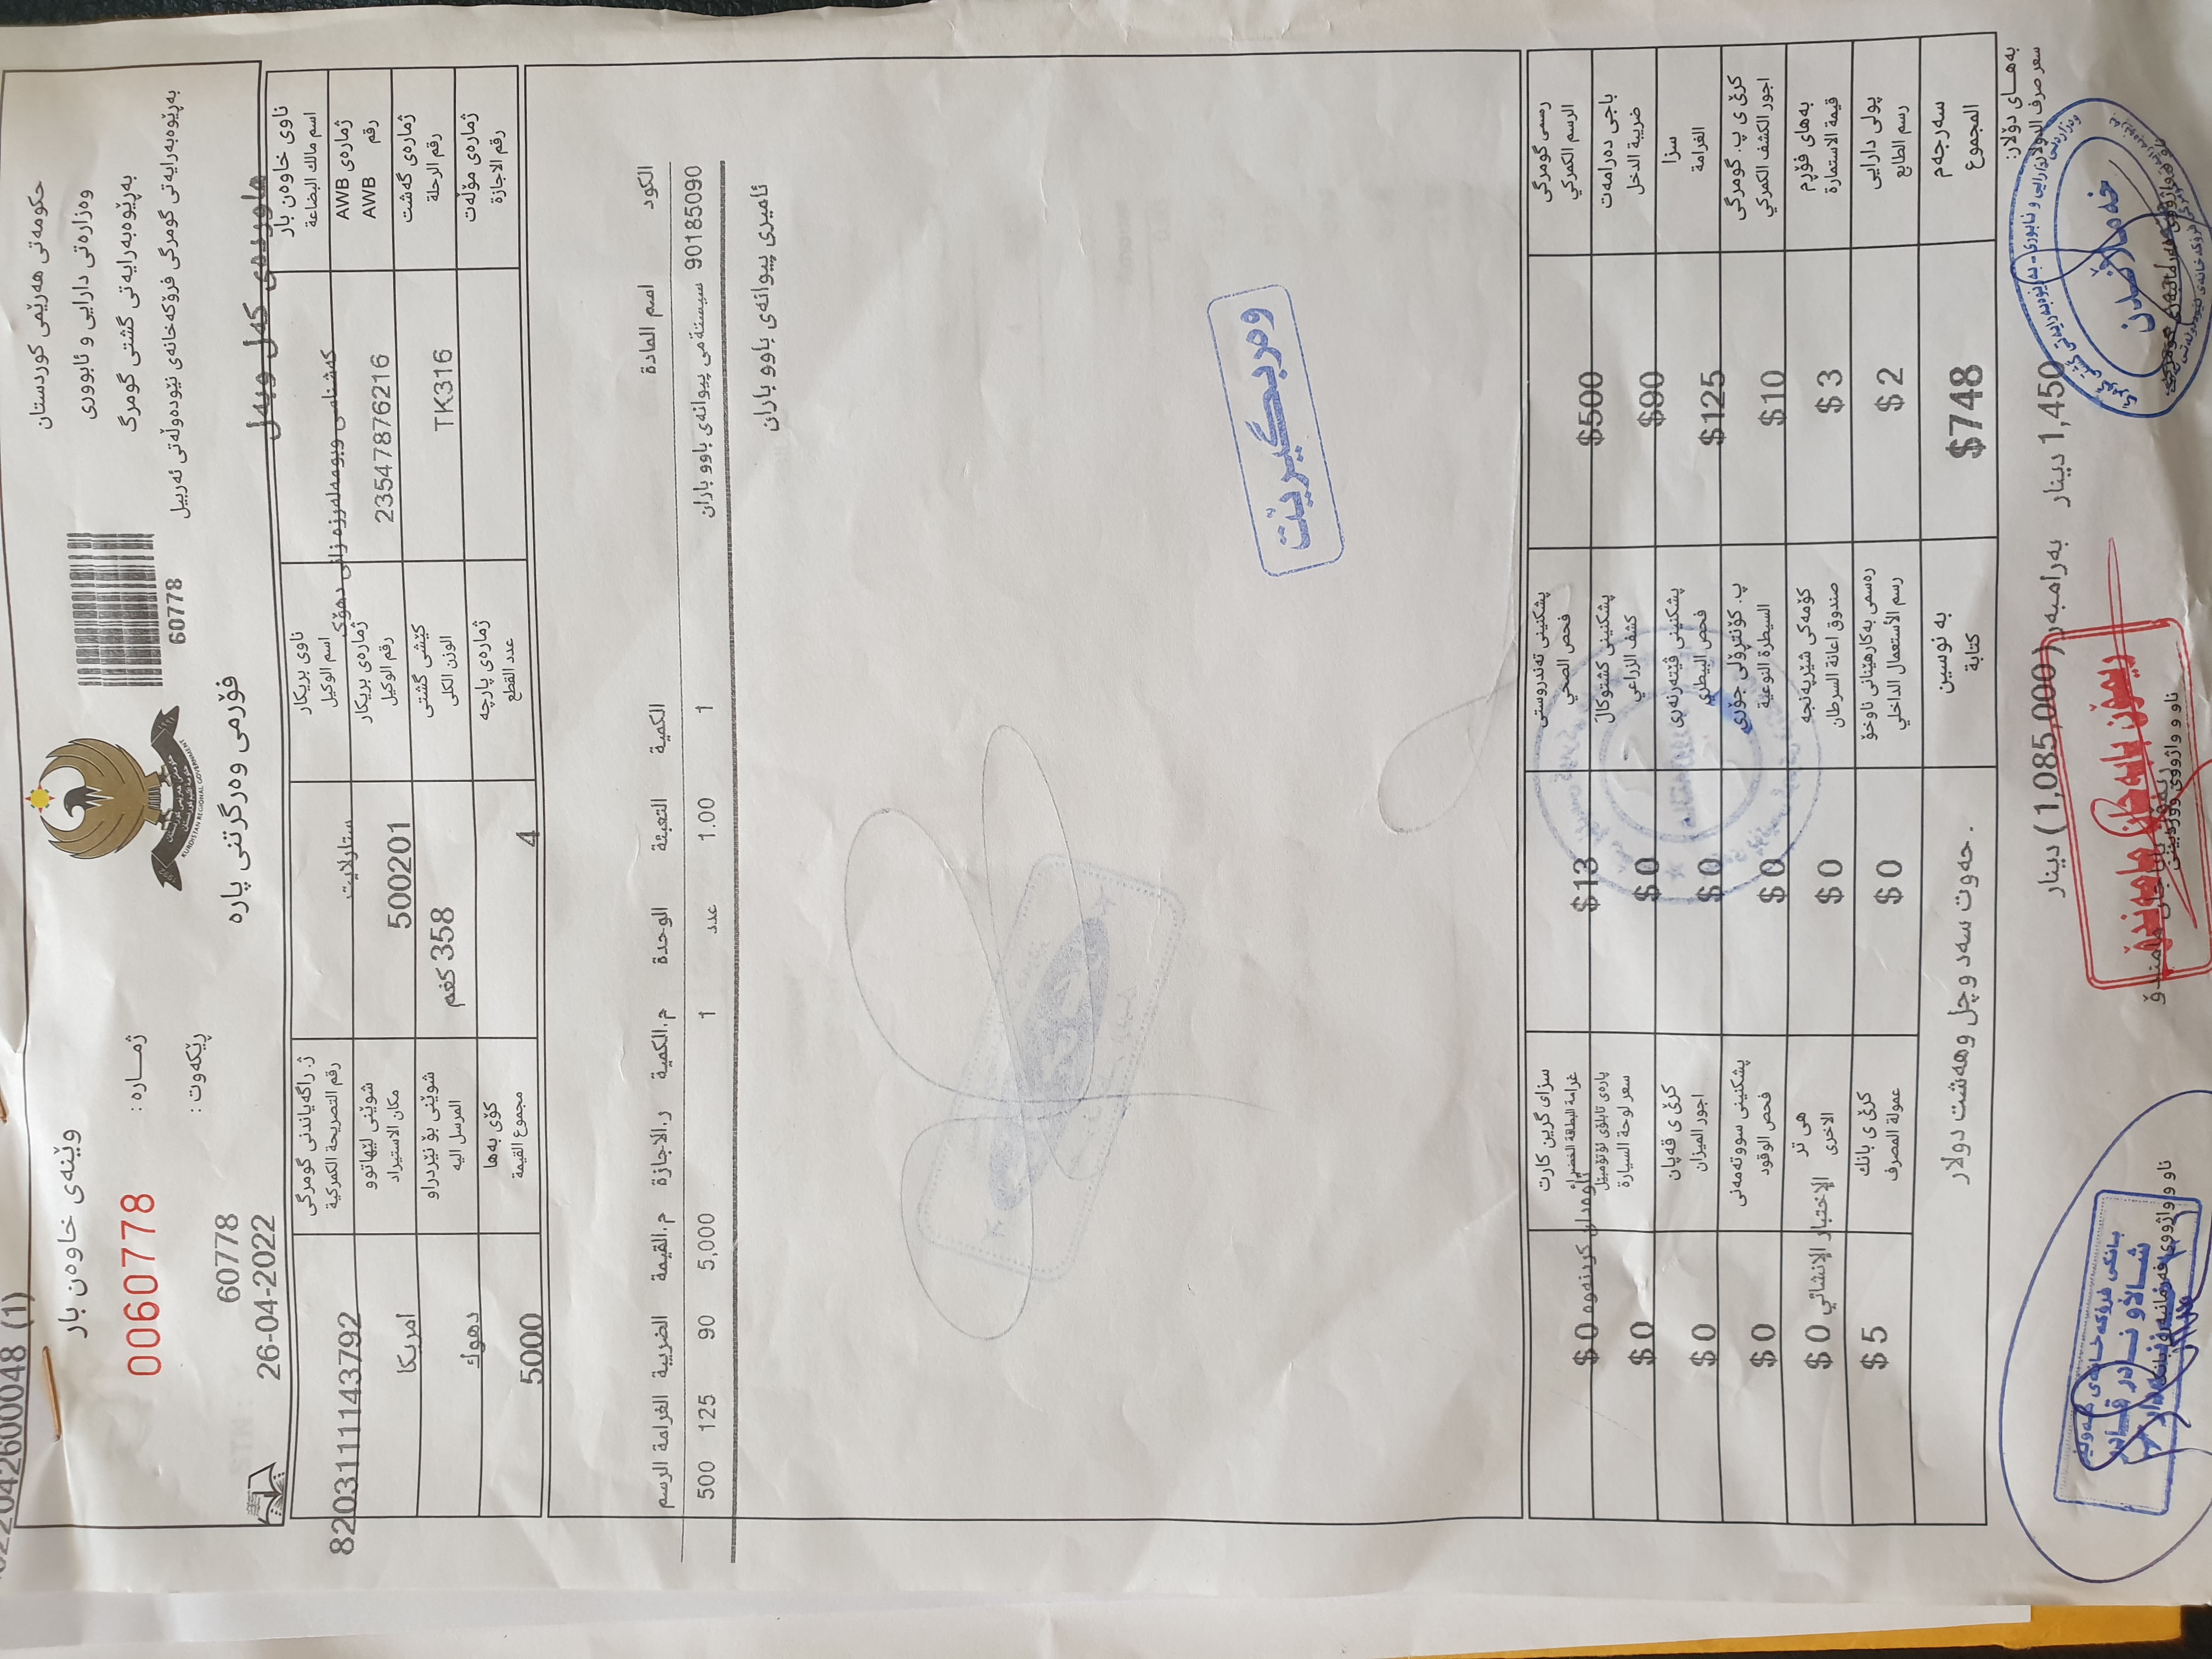 2022042600048 (1)
حکومەتی هەرێمی کوردستان
وەزارەتی دارایی و ئابووری
بەڕێوەبەرایەتی گشتی گومرگ
بەڕێوەبەرایەتی گومرگی فڕۆکەخانەی نێودەوڵەتی ئەربیل
60778
KURDISTAN REGIONAL GOVERNMENT
فۆرمی وەرگرتنی پارە
وێنەی خاوەن بار
ژمـــارە :
0060778
60778
ڕێکەوت :
26-04-2022
ناوی خاوەن بار
اسم مالك البضاعة
هاوردەی کەل وپەل
کەشناسی وبومەلەرزە زانی دهۆک
ناوی بریکار
اسم الوكيل
ستارلایت
ژ. راگەیاندنی گومرگی
رقم التصريحة الكمركية
82031111143792
ژمارەی AWB
رقم AWB
23547876216
ژمارەی بریکار
رقم الوكيل
500201
شوێنی لێهاتوو
مكان الاستيراد
امریکا
ژمارەی گەشت
رقم الرحلة
TK316
کێشی گشتی
الوزن الكلى
358 كغم
شوێنی بۆ نێردراو
المرسل اليه
دهوك
ژمارەی مۆڵەت
رقم الاجازة
ژمارەی پارچە
عدد القطع
4
کۆی بەها
مجموع القيمة
5000
الكود اسم المادة الكمية التعبئة الوحدة م.الكمية ر.الاجازة م.القيمة الضريبة الغرامة الرسم
90185090 سیستەمی پیوانەی باوو باران 1 1.00 عدد 1 5,000 90 125 500
ئامیری پیوانەی باوو باران
وەربگیریت
رسمی گومرگی
الرسم الكمركي
$500
پشکنینی تەندروستی
فحص الصحي
$13
سزای گرین کارت
غرامة البطاقة الخضراء
$ 0
باجی دەرامەت
ضريبة الدخل
$90
پشکنینی کشتوکاڵ
كشف الزراعي
$ 0
پارەی تابلۆی ئۆتۆمبێل
سعر لوحة السيارة
$ 0
سزا
الغرامة
$125
پشکنینی ڤێتەرنەری
فحص البيطري
$ 0
کرێ ی قەپان
اجور الميزان
$ 0
کرێ ی پ. گومرگی
اجور الكشف الكمركي
$10
پ. کۆنترۆلی جۆری
السيطرة النوعية
$ 0
پشکنینی سووتەمەنی
فحص الوقود
$ 0
بەهای فۆڕم
قيمة الاستمارة
$ 3
کۆمەکی شێرپەنجە
صندوق اعانة السرطان
$ 0
هی تر
الاخرى
الإختبار الإنشائي $ 0
پولی دارایی
رسم الطابع
$ 2
رەسمی بەکارهێنانی ناوخۆ
رسم الأستعمال الداخلي
$ 0
کرێ ی بانك
عمولة المصرف
$ 5
سەرجەم
المجموع
$748
بە نوسین
كتابة
حەوت سەد وچل وهەشت دولار .
بەهــای دۆلار:
سعر صرف الدولار
1,450 دینار بەرامبەر (1,085,000) دینار
ناو و واژووی وردبینی